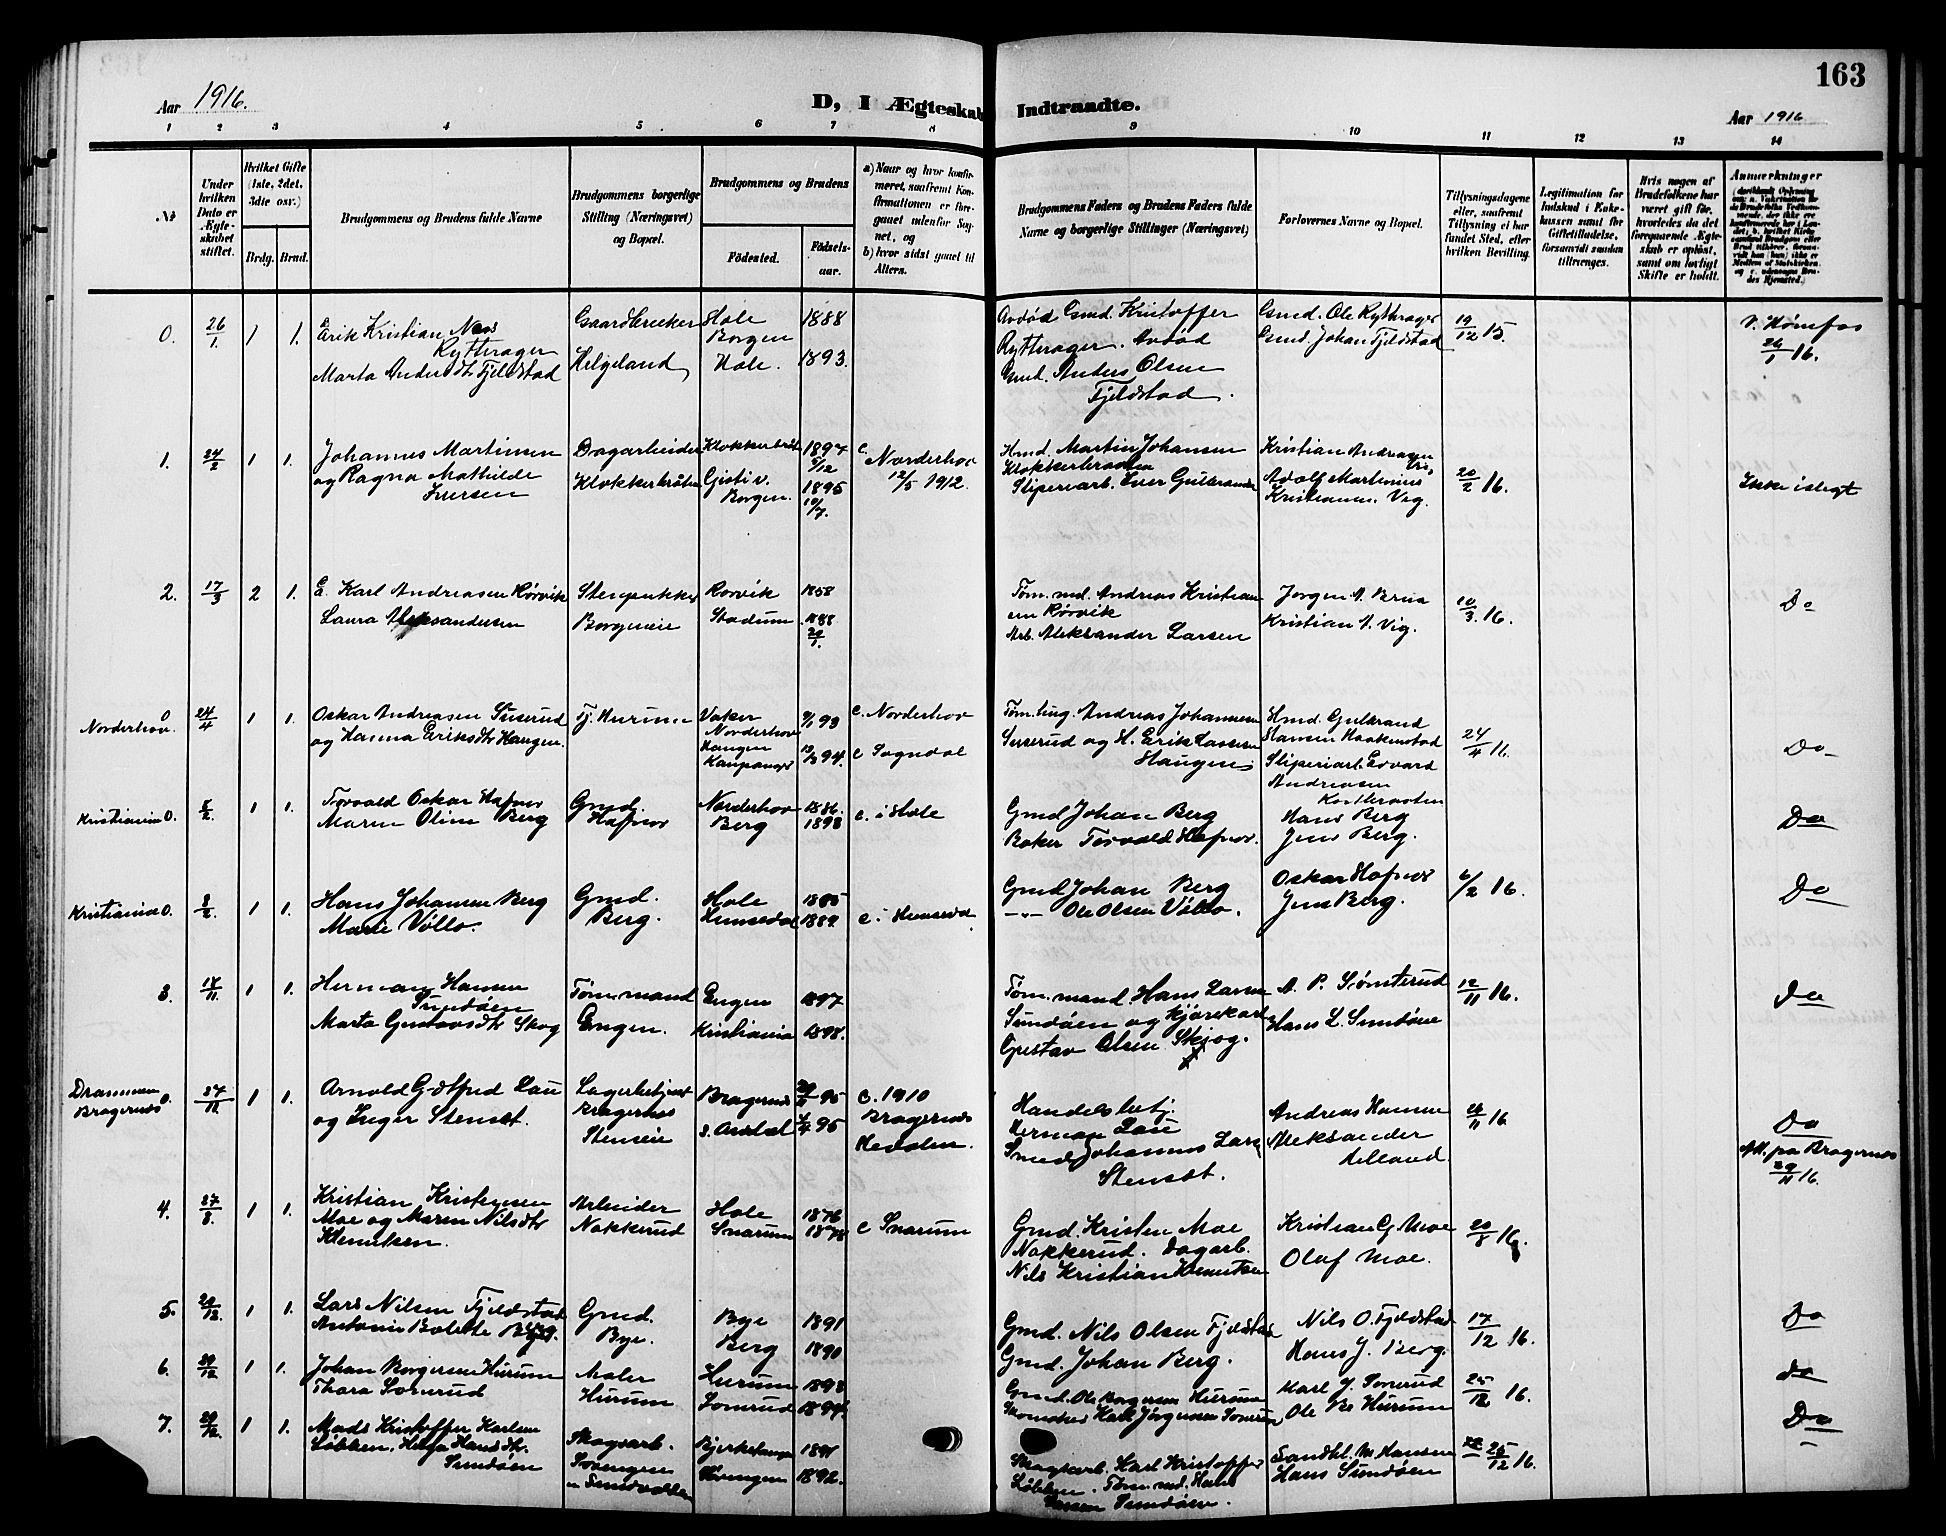 163
Aar 1916.
D, I Ægteskab Indtraadte.
Aar 1916
1 2 3 4 5 6 7 8 9 10 11 12 13 14
№
Under hvilken Dato er Ægteskabet stiftet.
Hvilket Gifte (1ste, 2det, 3die osv.)
Brdg. Brud.
Brudgommens og Brudens fulde Navne
Brudgommens borgerlige Stilling (Næringsvei) og Bopæl.
Brudgommens og Brudens
Fødested.
Fødsels-aar.
a) Naar og hvor konfirmeret, saafremt Konfirmationen er foregaaet udenfor Sognet, og
b) hvor sidst gaaet til Alters.
Brudgommens Faders og Brudens Faders fulde Navne og borgerlige Stillinger (Næringsvei)
Forlovernes Navne og Bopæl.
Tillysningsdagene eller, saafremt Tillysning ei har fundet Sted, efter hvilken Bevilling.
Legitimation for Indskud i Enkekassen samt for Giftetilladelse, forsaavidt saadan tiltrænges.
Hvis nogen af Brudefolkene har været gift før, hvorledes da det foregaaende Ægteskab er opløst, samt om lovligt Skifte er holdt.
Anmærkninger
0. 26/1 1 1. Erik Kristian Næs Gaardbruker Hole 1888 Avdød Gmd. Kristoffer Gmd. Ole Rytterager 19/12 15. V. Hønefos
Rytterager Borgen Rytterager. Avdød Gmd. Johan Fjeldstad 26/1 16.
Marta Andersdtr Fjeldstad Helgeland Hole. 1893. Gmd. Anders Olsen
Fjeldstad.
1. 24/2 1 1. Johannes Martinsen Dagarbeider Klokkerbråt 1897 6/12 c. Norderhov Hmd. Martin Johansen Kristian Andreasen
og Ragna Mathilde Klokkerbråten Gjesti v. 1895 12/5 1912. Klokkerbraaten Adolf Martinius 20/2 16. Ikke i slegt
Iversen Borgen. 10/7. Sliperiarb. Iver Gulbrandsen Kristiansen. Vig.
2. 17/3 2 1. E. Karl Andreasen Rørvik Stenpukker Rørvik 1858 Tøm.md. Andreas Kristian Jørgen A. Brua 10/3. 16. Do
Laura Aleksandersen Borgeneie Stadum 1888 20/1. sen Rørvik Kristian A. Vig.
Arb. Aleksander Larsen
Norderhov. 0 24/4 1 1. Oskar Andreasen Suserud Tj. Hurum Vaker 9/1 93 c. Norderhov Tøm.ling. Andreas Johannesen Hmd. Gulbrand
og Hanna Eriksdtr Haugen. Norderhov Suserud og H. Erik Lassen Hansen Haakenstad 24/4 16. Do
Haugen 94. c Sogndal Haugen Sliperiarb. Edvard
Kaupanger Andreasen
Kristiania 0. 8/2. 1 1. Torvald Oskar Hafnor Gmd. Norderhov 1886. c. i Hole Gmd Johan Berg Hans Berg Do
Maren Oline Berg Hafnor Berg 1893 Baker Torvald Hafnor. Jens Berg.
Kristiania 0. 8/2. 1 1. Hans Johansen Berg Gmd. Hole 1885 Gmd Johan Berg Oskar Hafnor 6/2 16. Do
Marie Vøllo. Berg. Hemsedal 1889. c. i Hemsedal -"- Ole Olsen Vøllo. Jens Berg.
3. 18/11. 1 1. Herman Hansen Tøm.mand Engen 1897 Tøm.mand Hans Larsen A. P. Sønsterud 12/11 16. Do
Sundøen Sundøen og Kjørekarl Hans L. Sundøen
Marta Gustavsdtr Skog Engen. Kristiania 1898. Gustav Olsen Skjog.
Drammen 0. 27/11 1 1. Arnold Gotfred Lau Lagerbetjent Bragernæs 95 c. 1910 Handelsbetj. Andreas Hansen 16 Do
Bragernæs og Inger Stenset. Bragernæs S. Aurdal 95 Bragernæs Herman Lau Aleksander Att. fra Bragernæs
Steneie Hedalen. Smed Johannes Larsen 29/11 16.
Stenset.
4. 27/8. 1 1. Kristian Kristensen Arbeider Hole 1876 Gmd. Kristen Moe Kristian G. Moe 20/8 16.
Moe og Maren Nilsdtr Nakkerud Snarum 1878 c Snarum Nakkerud. Dagarb. Olaf Moe.
Knutsen. Nils Kristian Knutsen
5. 29/12. 1 1. Lars Nilsen Fjeldstad Gmd. Bye 1891 Gmd. Nils Olsen Fjeldstad Nils O. Fjeldstad 17/12 16. Do
Antonie Bolette Berg. Bye. Berg 1890 Gmd. Johan Berg. Hans J. Berg.
6. 30/12 1 1. Johan Borgersen Hurum Maler Hurum 1893 Gmd. Ole Borgersen Hurum Karl J. Sonerud 25/12 16. do
Thora Sonerud Hurum Sonerud 1894. Karl Jørgensen Sonerud Ole Hurum
7. 30/12. 1 1. Mads Kristoffer Karlsen Skogsarb. Bjerkehaugen 1891 Skogsarb. Karl Kristoffer Sandbk. M. Hansen 25/12 16. Do
Løbben. Helga Hansdtr. Svengen 1892. Løbben. Tøm.md. Hans Hans Sundøen
Sundøen Sundvolden Larsen Sundøen.